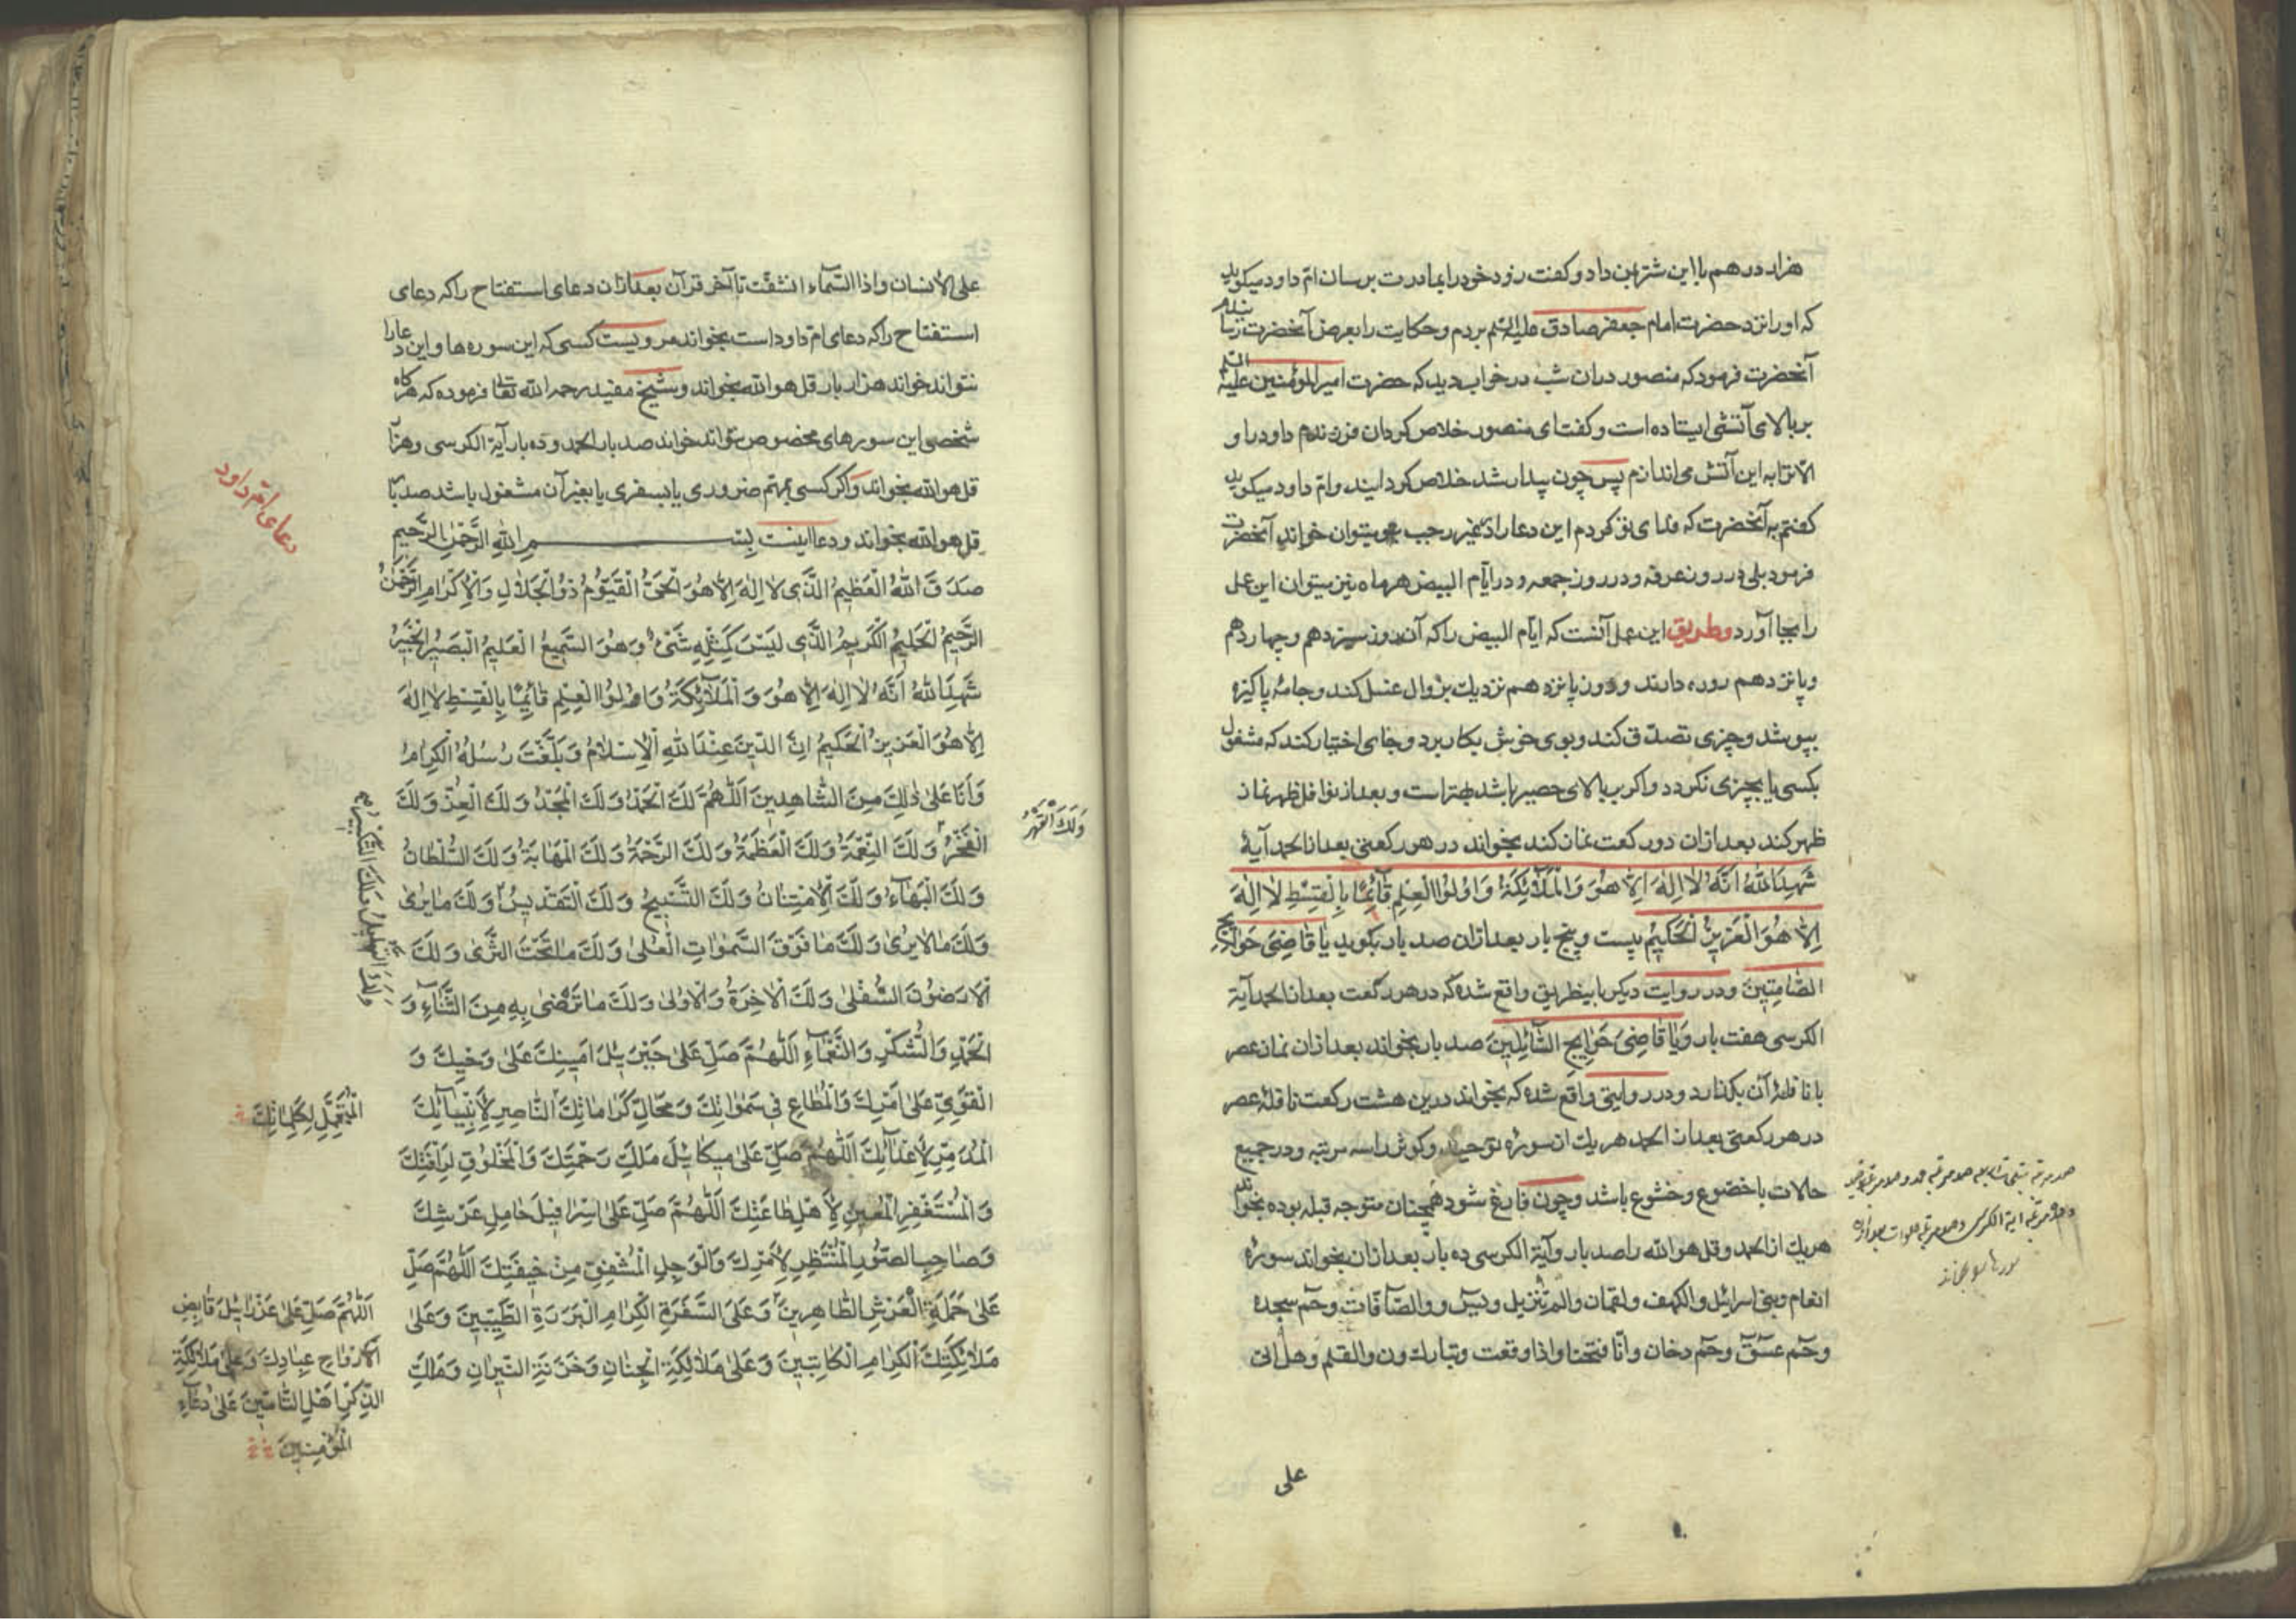 هزار درهم با این شتر بمن داد و گفت زود خود را بمادرت برسان ام داود میگوید
که او را نزد حضرت امام جعفر صادق علیه السّلم بردم و حکایت را بعرض آنحضرت رسانیدم
آنحضرت فرمود که منصور در ان شب در خواب دید که حضرت امیر المؤمنین علیه السّلم
بر بالای آتشی ایستاده است و گفت ای منصور خلاص کردان فرزندم داود را و
الّا ترا به این آتش می اندازم پس چون بیدار شد خلاص کردانید و امّ داود میکوید
کفتم به آنحضرت که فدای تو کردم این دعا را در غیر رجب میتوان خواند آنحضرت
فرمود بلی در روز عرفه و در روز جمعه و در ایّام البیض هر ماه نیز میتوان این عمل
را بجا آورد و طریق این عمل آنست که ایّام البیض را که آن روز سیزدهم و چهاردهم
و پانزدهم روزه دارند و روز پانزدهم نزدیک بزوال غسل کند و جامهٔ پاکیزه
بپوشد و چیزی تصدّق کند و بوی خوش بکار برد و جای اختیار کند که مشغول
بکسی یا بچیزی نکردد و اکر بر بالای حصیر باشد بهتر است و بعد از نوافل ظهر نماز
ظهر کند بعد ازان دو رکعت نماز کند بخواند در هر رکعتی بعد از الحمد آیهٔ
شَهِدَ اللّٰهُ اَنَّهُ لٰا اِلٰهَ اِلّٰا هُوَ وَالْمَلٰٓائِکَةُ وَاُولُوا الْعِلْمِ قٰٓائِمًا بِالْقِسْطِ لٰا اِلٰهَ
اِلّٰا هُوَ الْعَزِیزُ الْحَکِیمُ بیست و پنج بار بعد ازان صد بار بکوید یٰا قٰاضِیَ حَوٰائِجِ
الصّٰامِتِینَ و در روایت دیکر باینطریق واقع شده که در هر رکعت بعد از الحمد آیة
الکرسی هفت بار و یٰا قٰاضِیَ حَوٰائِجِ السّٰائِلِینَ صد بار بخواند بعد ازان نماز عصر
با نافلهٔ آن بکذارد و در روایتی واقع شده که بخواند درین هشت رکعت نافلهٔ عصر
در هر رکعتی بعد از الحمد هر یک از سورهٔ توحید و کوثر را سه مرتبه و در جمیع
حالات با خضوع و خشوع باشد و چون فارغ شود همچنان متوجه قبله بوده بخواند
هر یک از الحمد و قل هو الله را صد بار و آیة الکرسی ده بار بعد ازان بخواند سورهٔ
انعام و بنی اسرائیل و الکهف و لقمان و الم تنزیل و یس و والصآفّات و حم سجده
و حم عسق و حم دخان و انّا فتحنا و اذا وقعت و تبارک و ن والقلم و هل اتی
علی
علی الانسان و اذا السّمآء انشقّت تا آخر قرآن بعد ازان دعای استفتاح را که دعای
استفتاح را که دعای ام داود است بخواند مرویست کسی که این سوره ها و این دعا را
نتواند خواند هزار بار قل هو الله بخواند و شیخ مفید رحمه الله تعالی فرموده که هرکاه
شخصی این سورهای مخصوص نتواند خواند صد بار الحمد و ده بار آیة الکرسی و هزار
قل هو الله بخواند و اکر کسی بمهم ضروری یا بسفری یا بغیر آن مشغول باشد صد بار
قل هو الله بخواند و دعا اینست بِسْمِ اللّٰهِ الرَّحْمٰنِ الرَّحِیمِ
دعای امّ داود
صَدَقَ اللّٰهُ الْعَظِیمُ الَّذِی لٰا اِلٰهَ اِلّٰا هُوَ الْحَیُّ الْقَیُّومُ ذُو الْجَلٰالِ وَالْاِکْرٰامِ الرَّحْمٰنُ
الرَّحِیمُ الْحَلِیمُ الْکَرِیمُ الَّذِی لَیْسَ کَمِثْلِهِ شَیْءٌ وَهُوَ السَّمِیعُ الْعَلِیمُ الْبَصِیرُ الْخَبِیرُ
شَهِدَ اللّٰهُ اَنَّهُ لٰا اِلٰهَ اِلّٰا هُوَ وَالْمَلٰٓائِکَةُ وَاُولُوا الْعِلْمِ قٰائِمًا بِالْقِسْطِ لٰا اِلٰهَ
اِلّٰا هُوَ الْعَزِیزُ الْحَکِیمُ اِنَّ الدِّینَ عِنْدَ اللّٰهِ الْاِسْلٰامُ وَبَلَّغَتْ رُسُلُهُ الْکِرٰامُ
وَاَنَا عَلٰی ذٰلِکَ مِنَ الشّٰاهِدِینَ اَللّٰهُمَّ لَکَ الْحَمْدُ وَلَکَ الْمَجْدُ وَلَکَ الْعِزُّ وَلَکَ
وَلَکَ الْقَهْرُ
الْفَخْرُ وَلَکَ النِّعْمَةُ وَلَکَ الْعَظَمَةُ وَلَکَ الرَّحْمَةُ وَلَکَ الْمَهٰابَةُ وَلَکَ السُّلْطٰانُ
وَلَکَ الْبَهٰٓاءُ وَلَکَ الْاِمْتِنٰانُ وَلَکَ التَّسْبِیحُ وَلَکَ التَّقْدِیسُ وَلَکَ مٰا یُرٰی
وَلَکَ التَّهْلِیلُ وَلَکَ التَّکْبِیرُ
وَلَکَ مٰا لٰا یُرٰی وَلَکَ مٰا فَوْقَ السَّمٰوٰاتِ الْعُلٰی وَلَکَ مٰا تَحْتَ الثَّرٰی وَلَکَ
الْاَرَضُونَ السُّفْلٰی وَلَکَ الْاٰخِرَةُ وَالْاُولٰی وَلَکَ مٰا تَرْضٰی بِهِ مِنَ الثَّنٰٓاءِ وَ
الْحَمْدِ وَالشُّکْرِ وَالنَّعْمٰٓاءِ اَللّٰهُمَّ صَلِّ عَلٰی جَبْرَئِیلَ اَمِینِکَ عَلٰی وَحْیِکَ وَ
الْقَوِیِّ عَلٰی اَمْرِکَ وَالْمُطٰاعِ فِی سَمٰوٰاتِکَ وَمَحٰالِّ کَرٰامٰاتِکَ النّٰاصِرِ لِاَنْبِیٰآئِکَ
الْمُتَحَمِّلِ لِکَلِمٰاتِکَ
الْمُدَمِّرِ لِاَعْدٰآئِکَ اَللّٰهُمَّ صَلِّ عَلٰی مِیکٰائِیلَ مَلَکِ رَحْمَتِکَ وَالْمَخْلُوقِ لِرَأْفَتِکَ
وَالْمُسْتَغْفِرِ الْمُعِینِ لِاَهْلِ طٰاعَتِکَ اَللّٰهُمَّ صَلِّ عَلٰی اِسْرٰافِیلَ حٰامِلِ عَرْشِکَ
وَصٰاحِبِ الصُّورِ الْمُنْتَظِرِ لِاَمْرِکَ وَالْوَجِلِ الْمُشْفِقِ مِنْ خِیفَتِکَ اَللّٰهُمَّ صَلِّ
عَلٰی حَمَلَةِ الْعَرْشِ الطّٰاهِرِینَ وَعَلَی السَّفَرَةِ الْکِرٰامِ الْبَرَرَةِ الطَّیِّبِینَ وَعَلٰی
مَلٰائِکَتِکَ الْکِرٰامِ الْکٰاتِبِینَ وَعَلٰی مَلٰائِکَةِ الْجِنٰانِ وَخَزَنَةِ النِّیرٰانِ وَمَلَکِ
اَللّٰهُمَّ صَلِّ عَلٰی عَزْرٰائِیلَ قٰابِضِ
الْاَرْوٰاحِ عِبٰادِکَ وَعَلٰی مَلٰائِکَةِ
الذِّکْرِ اَهْلِ التّٰامِینَ عَلٰی دُعٰآءِ
الْمُؤْمِنِینَ